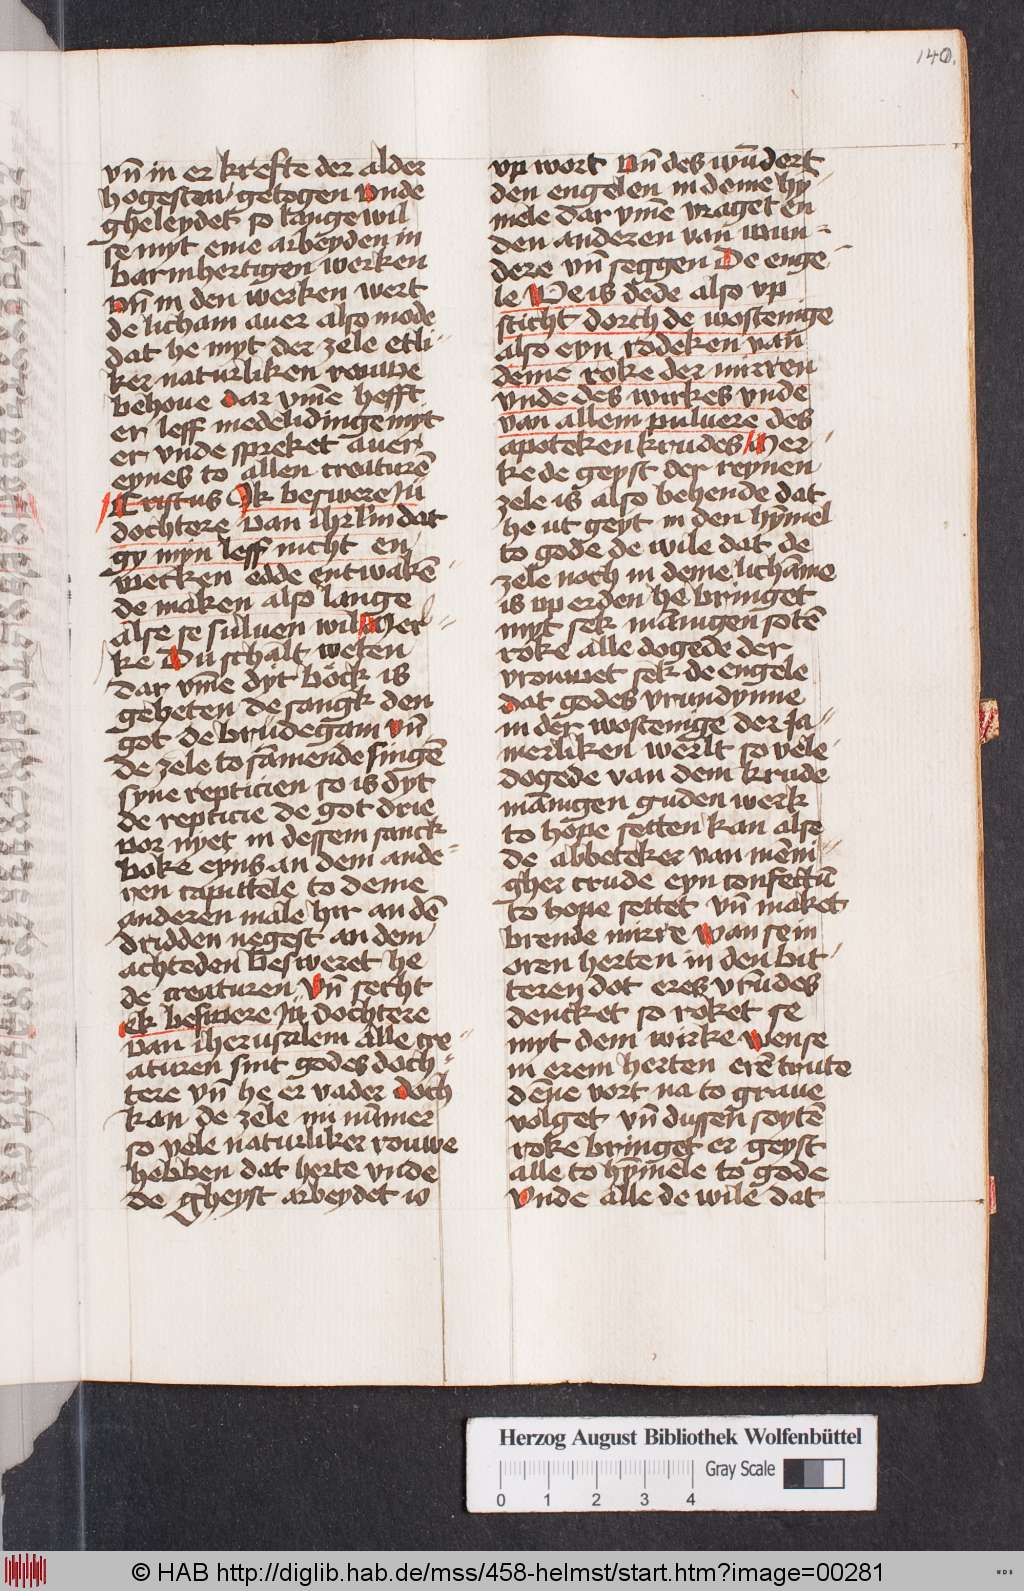 140.
vn̄ in er krefte der alder
hogesten getogen vnde
gheleydet so lange wil
se myt eme arbeyden in
barmhertigen werken
vn̄ in den werken wert
de licham auer also mode
dat he myt der zele etli-
ker naturliken rouwe
behoue dar vm̄e hefft
er leff medelidinge myt
er vnde spreket auer
eynes to allen creaturē
Cristus Ik beswere iu
dochtere van ihrl'm dat
gy myn leff nicht en
wecken edde entwakē
de maken also lange
alse se suluen wil Mer-
ke Du schalt weten
dar vm̄e dyt bock is
geheten de sangk den
got de brudegam vn̄
de zele to sāmende singē
syne repticien so is dyt
de repticie de got drie
vor nyet in dessem sanck
boke eyns an dem ande-
ren capittele to deme
anderen male hir an dē
dridden negest an dem
achteden besweret he
de creaturen Vn̄ secht
Ik beswere iu dochtere
van iherusalem Alle cre-
aturen sint godes doch-
tere vn̄ he er vader doch
kan de zele ni nūmer
so vele naturliker rouwe
hebben dat herte vnde
de gheyst arbeydet io
vp wort Vn̄ des wūdert
den engelen in deme hȳ-
mele dar vm̄e vraget en
den anderen van wun-
dere vn̄ seggen De enge-
le We is dede also vp
sticht dorch de wostenige
also eyn rodeken van
deme roke der mirren
vnde des wirkes vnde
van allem puluere des
apoteken krudes Mer-
ke de geyst der reynen
zele is also behende dat
he ut geyt in den hȳmel
to gode de wile dat de
zele noch in deme lichāme
is vp erden he bringet
myt sek mānigen sotē
roke alle dogede der
vrouwet sek de engele
dat godes vrundynne
in der wostenige der ja-
merliken werlt so vele
dogede van dem krude
mānigen guden werk
to hope setten kan alse
de abbeteker van mēni-
gher crude eyn confectū
to hope settet vn̄ maket
brende mirre Wan se in
eren herten in den bit-
teren dot eres vrūdes
dencket so roket se
myt dem wirke Wen se
in erem herten erē trute
dēne vort na to graue
volget vn̄ dussen soytē
roke bringet er geyst
alle to hȳmele to gode
Vnde alle de wile dat
Herzog August Bibliothek Wolfenbüttel
Gray Scale
0 1 2 3 4
© HAB http://diglib.hab.de/mss/458-helmst/start.htm?image=00281